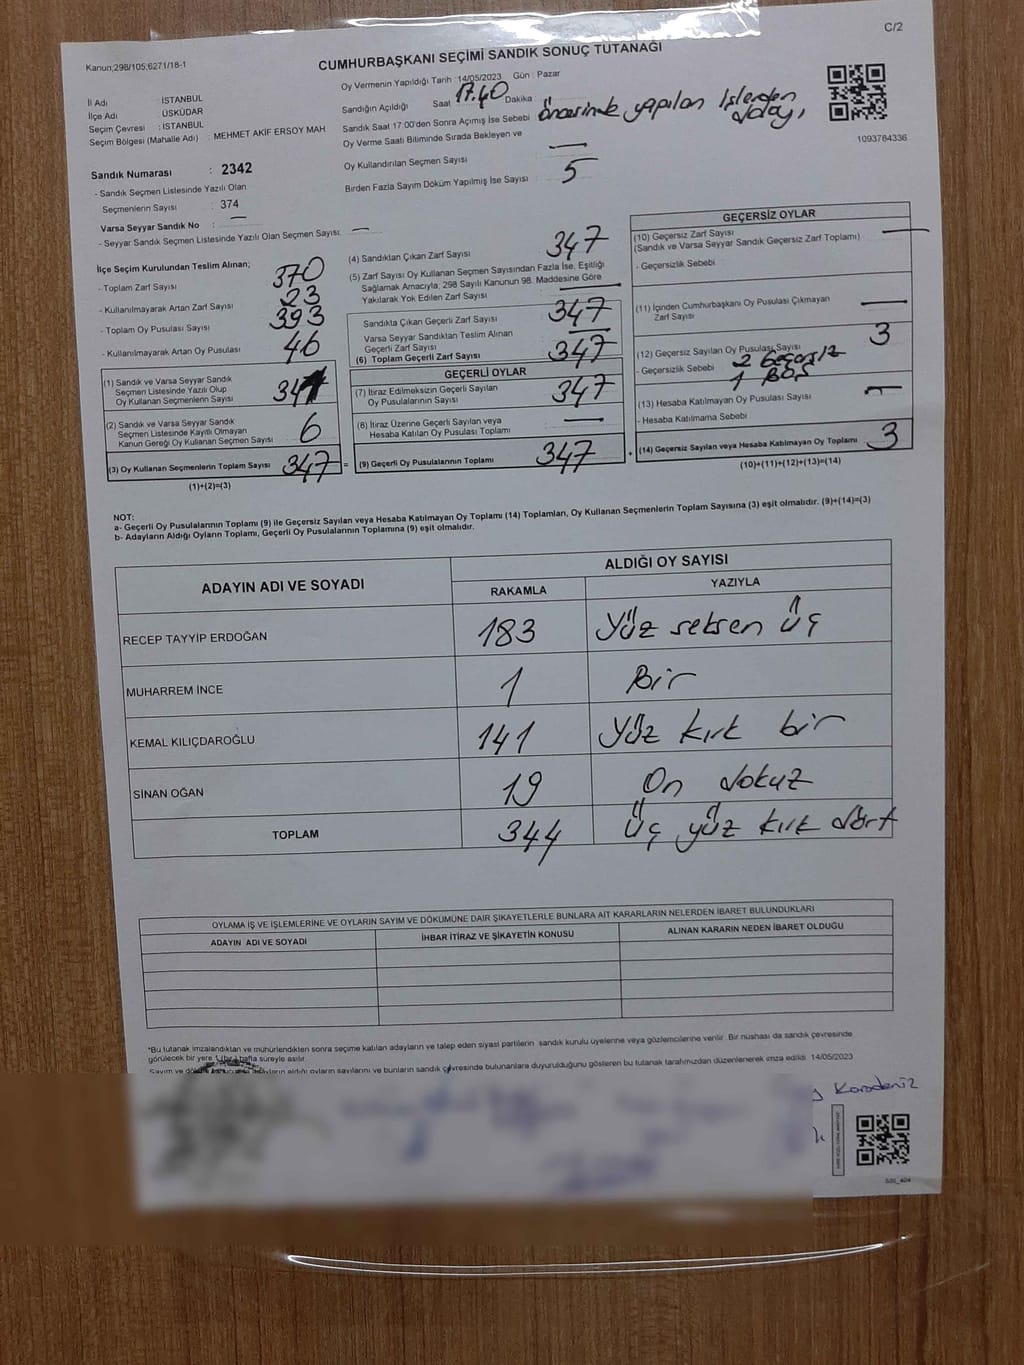 C/2
Kanun;298/105;6271/18-1
CUMHURBAŞKANI SEÇİMİ SANDIK SONUÇ TUTANAĞI
İl Adı : İSTANBUL
İlçe Adı : ÜSKÜDAR
Seçim Çevresi : İSTANBUL
Seçim Bölgesi (Mahalle Adı) : MEHMET AKİF ERSOY MAH
Oy Vermenin Yapıldığı Tarih :14/05/2023 Gün : Pazar
Sandığın Açıldığı Saat 17.40 Dakika
Sandık Saat 17:00'den Sonra Açımış İse Sebebi öncesinde yapılan işlerden dolayı
Oy Verme Saati Bitiminde Sırada Bekleyen ve
Oy Kullandırılan Seçmen Sayısı —
Birden Fazla Sayım Döküm Yapılmış İse Sayısı : 5
1093764336
Sandık Numarası : 2342
- Sandık Seçmen Listesinde Yazılı Olan
Seçmenlerin Sayısı : 374
Varsa Seyyar Sandık No : —
- Seyyar Sandık Seçmen Listesinde Yazılı Olan Seçmen Sayısı: —
İlçe Seçim Kurulundan Teslim Alınan;
- Toplam Zarf Sayısı 370
- Kullanılmayarak Artan Zarf Sayısı 23
- Toplam Oy Pusulası Sayısı 393
- Kullanılmayarak Artan Oy Pusulası 46
(1) Sandık ve Varsa Seyyar Sandık
Seçmen Listesinde Yazılı Olup
Oy Kullanan Seçmenlerin Sayısı 341
(2) Sandık ve Varsa Seyyar Sandık
Seçmen Listesinde Kayıtlı Olmayan
Kanun Gereği Oy Kullanan Seçmen Sayısı 6
(3) Oy Kullanan Seçmenlerin Toplam Sayısı 347 =
(1)+(2)=(3)
(4) Sandıktan Çıkan Zarf Sayısı 347
(5) Zarf Sayısı Oy Kullanan Seçmen Sayısından Fazla İse, Eşitliği
Sağlamak Amacıyla, 298 Sayılı Kanunun 98. Maddesine Göre
Yakılarak Yok Edilen Zarf Sayısı —
Sandıkta Çıkan Geçerli Zarf Sayısı 347
Varsa Seyyar Sandıktan Teslim Alınan
Geçerli Zarf Sayısı —
(6) Toplam Geçerli Zarf Sayısı 347
GEÇERLİ OYLAR
(7) İtiraz Edilmeksizin Geçerli Sayılan
Oy Pusulalarının Sayısı 347
(8) İtiraz Üzerine Geçerli Sayılan veya
Hesaba Katılan Oy Pusulası Toplamı —
(9) Geçerli Oy Pusulalarının Toplamı 347 +
GEÇERSİZ OYLAR
(10) Geçersiz Zarf Sayısı —
(Sandık ve Varsa Seyyar Sandık Geçersiz Zarf Toplamı)
- Geçersizlik Sebebi
(11) İçinden Cumhurbaşkanı Oy Pusulası Çıkmayan
Zarf Sayısı —
(12) Geçersiz Sayılan Oy Pusulası Sayısı 3
- Geçersizlik Sebebi 2 Geçersiz
1 BOŞ
(13) Hesaba Katılmayan Oy Pusulası Sayısı —
- Hesaba Katılmama Sebebi
(14) Geçersiz Sayılan veya Hesaba Katılmayan Oy Toplamı 3
(10)+(11)+(12)+(13)=(14)
NOT:
a- Geçerli Oy Pusulalarının Toplamı (9) ile Geçersiz Sayılan veya Hesaba Katılmayan Oy Toplamı (14) Toplamları, Oy Kullanan Seçmenlerin Toplam Sayısına (3) eşit olmalıdır. (9)+(14)=(3)
b- Adayların Aldığı Oyların Toplamı, Geçerli Oy Pusulalarının Toplamına (9) eşit olmalıdır.
ADAYIN ADI VE SOYADI
ALDIĞI OY SAYISI
RAKAMLA YAZIYLA
RECEP TAYYİP ERDOĞAN 183 Yüz seksen üç
MUHARREM İNCE 1 Bir
KEMAL KILIÇDAROĞLU 141 Yüz kırk bir
SİNAN OĞAN 19 On dokuz
TOPLAM 344 Üç yüz kırk dört
OYLAMA İŞ VE İŞLEMLERİNE VE OYLARIN SAYIM VE DÖKÜMÜNE DAİR ŞİKAYETLERLE BUNLARA AİT KARARLARIN NELERDEN İBARET BULUNDUKLARI
ADAYIN ADI VE SOYADI İHBAR İTİRAZ VE ŞİKAYETİN KONUSU ALINAN KARARIN NEDEN İBARET OLDUĞU
*Bu tutanak imzalandıktan ve mühürlendikten sonra seçime katılan adayların ve talep eden siyasi partilerin sandık kurulu üyelerine veya gözlemcilerine verilir. Bir nüshası da sandık çevresinde
görülecek bir yere 1 (bir) hafta süreyle asılır.
Sayım ve adayların aldığı oyların sayılarını ve bunların sandık çevresinde bulunanlara duyurulduğunu gösteren bu tutanak tarafımızdan düzenlenerek imza edildi. 14/05/2023
Karadeniz